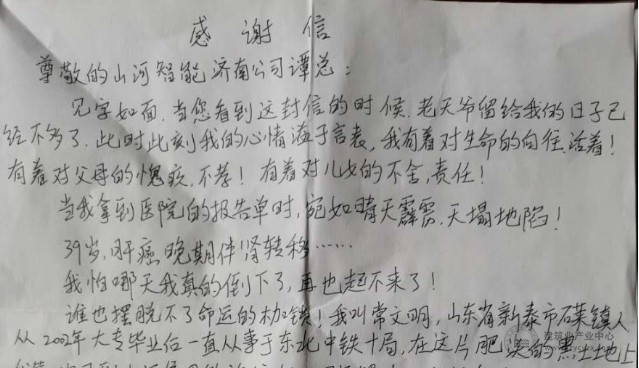 感谢信
尊敬的山河智能济南公司谭总：
见字如面，当您看到这封信的时候，老天爷留给我的日子已
经不多了，此时此刻我的心情溢于言表，我有着对生命的向往，活着！
有着对父母的愧疚，不孝！有着对儿女的不舍，责任！
当我拿到医院的报告单时，宛如晴天霹雳，天塌地陷！
39岁，肝癌，晚期伴肾转移……
我怕哪天我真的倒下了，再也起不来了！
谁也摆脱不了命运的枷锁！我叫常文明，山东省新泰市石莱镇人
从2002年大专毕业后一直从事于东北中铁十局，在这片肥沃的黑土地上